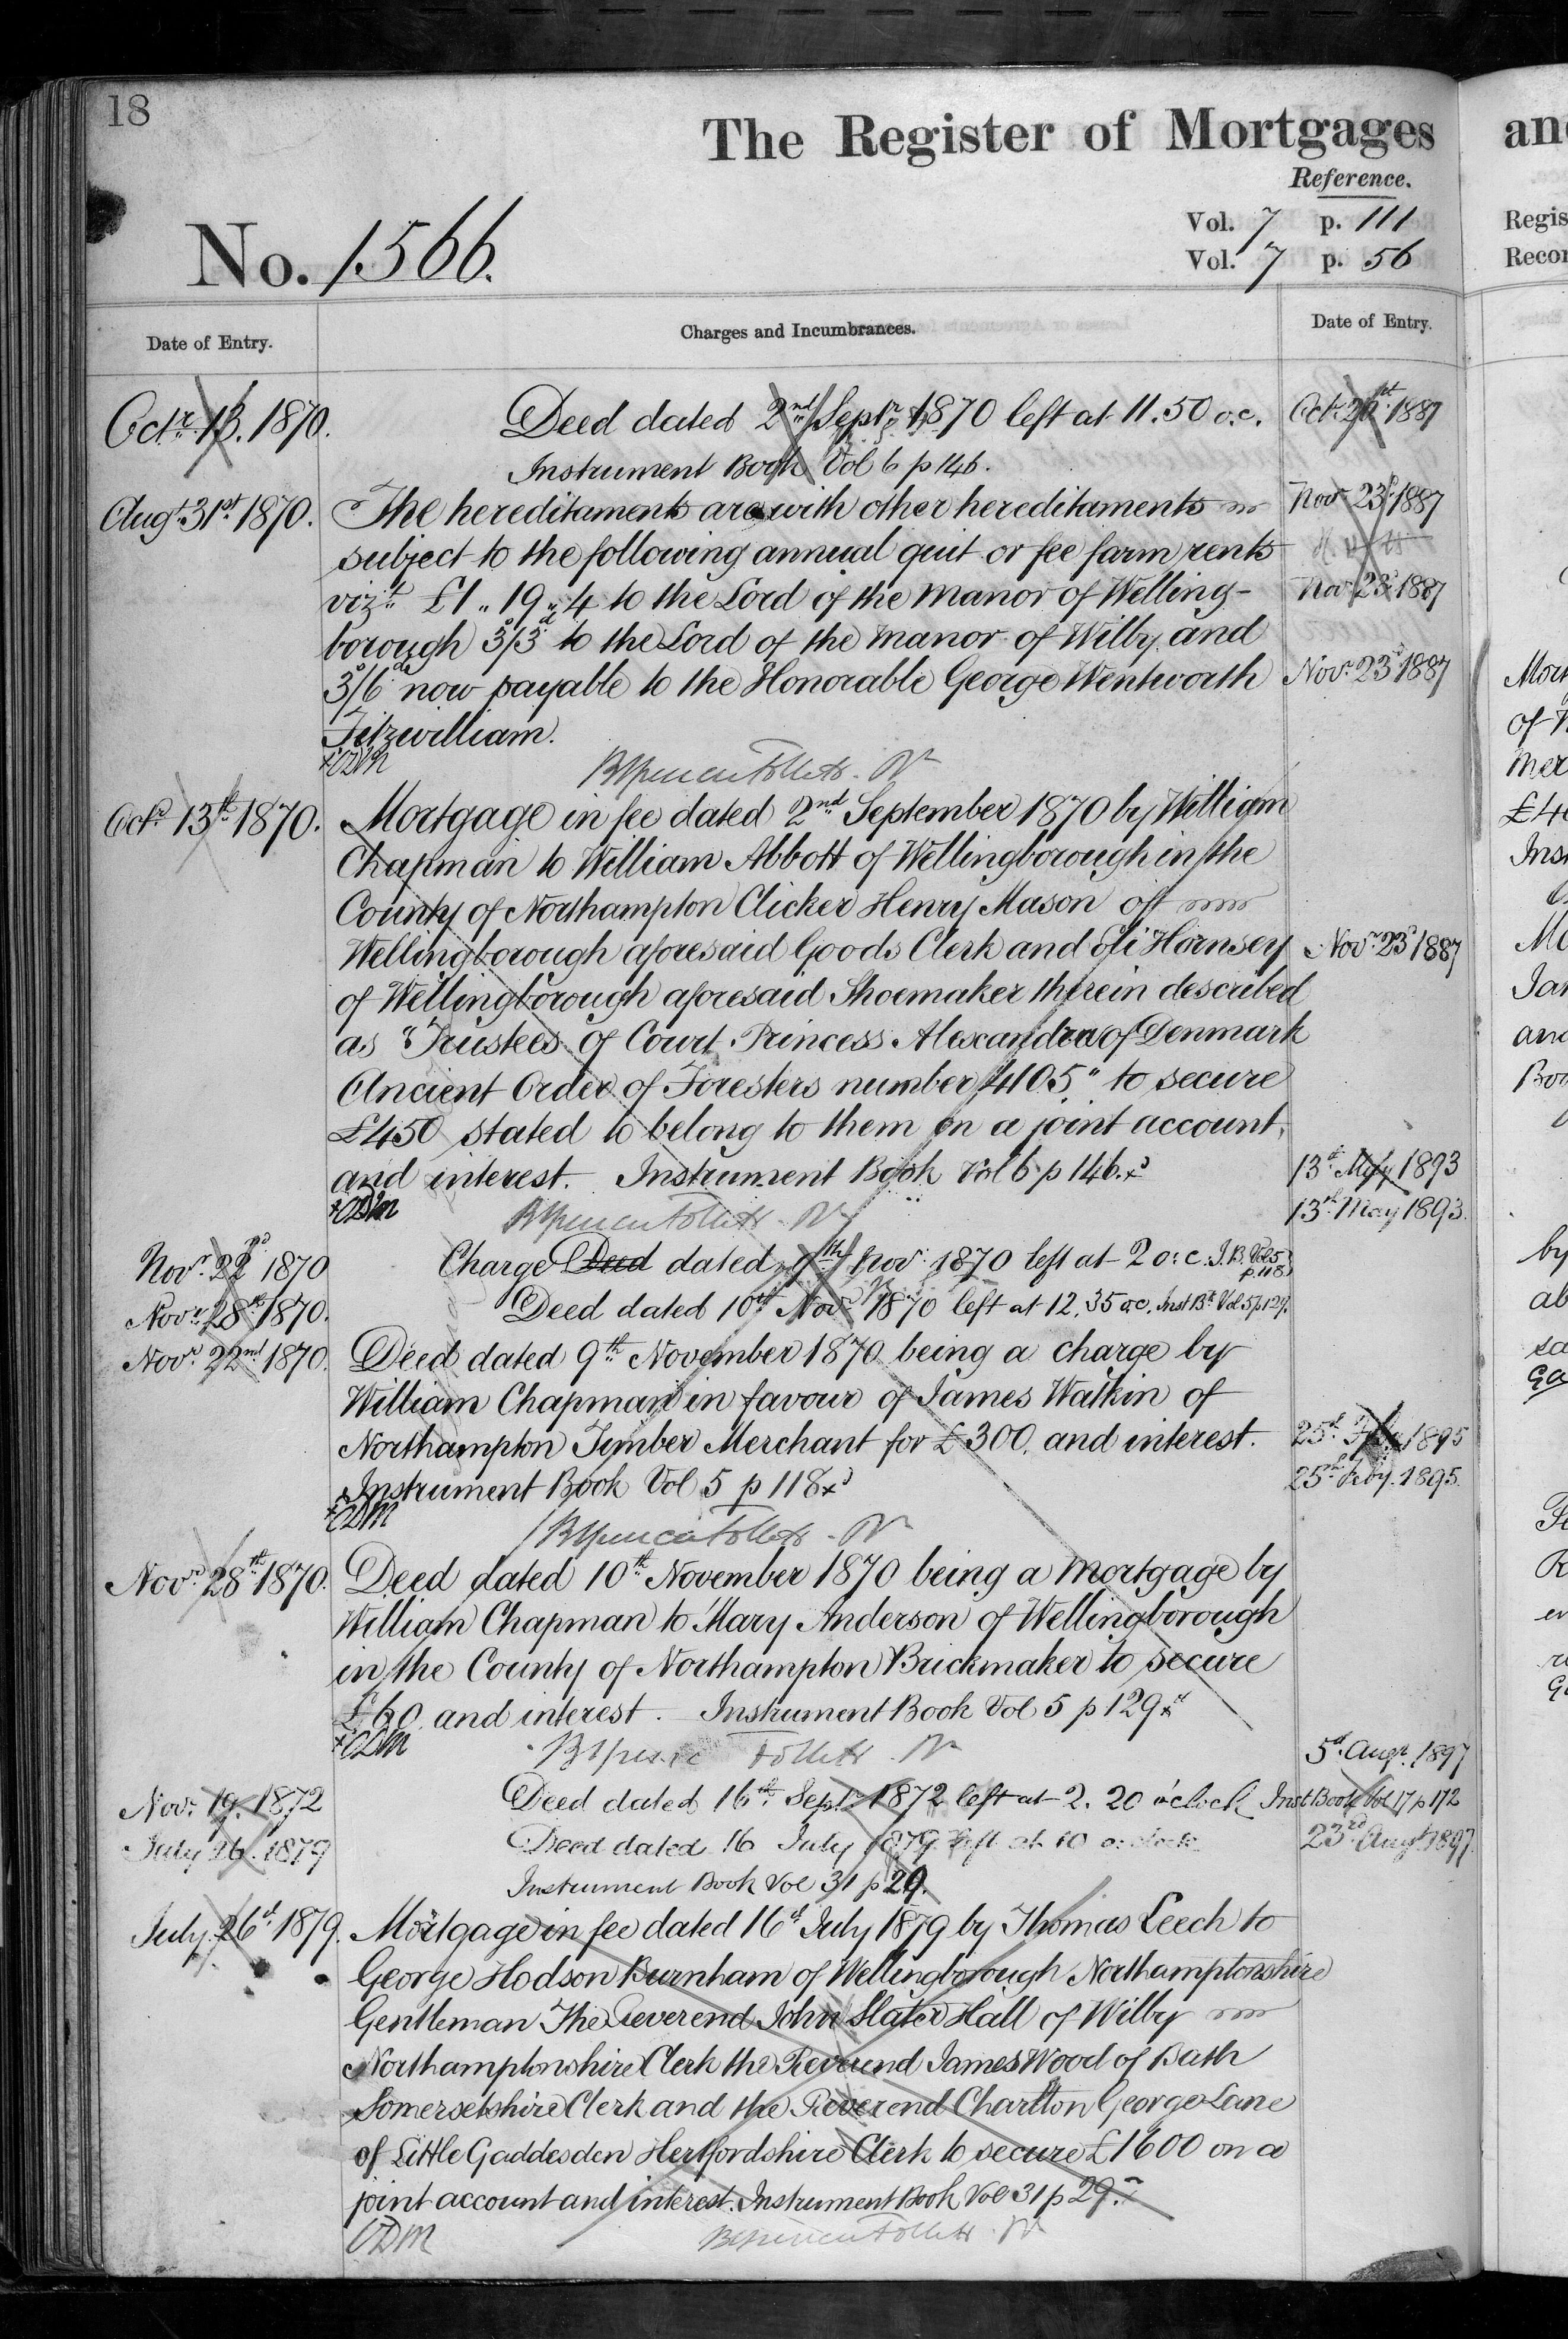 18
The Register of Mortgages
Reference.
Vol. 7 p. 111
Vol. 7 p. 56
No. 1566.
Date of Entry.
Charges and Incumbrances.
Date of Entry.
Octr. 13. 1870.
Deed dated 2nd Septr. 1870 left at 11.50 o.c.
Instrument Book Vol 6 p 146.
Augt. 31st. 1870.
The hereditaments are with other hereditaments
subject to the following annual quit or fee farm rents
vizt. £1 „ 19 „ 4 to the Lord of the Manor of Welling-
borough 3s/3d to the Lord of the Manor of Wilby and
3s/6d now payable to the Honorable George Wentworth
Fitzwilliam.
Octr. 13th 1870.
Mortgage in fee dated 2nd September 1870 by William
Chapman to William Abbott of Wellingborough in the
County of Northampton Clicker Henry Mason of
Wellingborough aforesaid Goods Clerk and Eli Hornsey
of Wellingborough aforesaid Shoemaker therein described
as "Trustees of Court Princess Alexandra of Denmark
Ancient Order of Foresters number 4105" to secure
£450 stated to belong to them on a joint account,
and interest. Instrument Book Vol 6 p 146.
Novr. 22d 1870
Charge Deed dated 9th Novr. 1870 left at 2 o.c. I.B. Vol 5
p. 118
Novr. 28th 1870.
Deed dated 10th Novr. 1870 left at 12.35 o.c. Inst Bk Vol 5 p 129.
Novr. 22nd 1870.
Deed dated 9th November 1870 being a charge by
William Chapman in favour of James Watkin of
Northampton Timber Merchant for £300. and interest.
Instrument Book Vol 5 p 118
Novr. 28th 1870.
Deed dated 10th November 1870 being a Mortgage by
William Chapman to Mary Anderson of Wellingborough
in the County of Northampton Brickmaker to secure
£60. and interest. Instrument Book Vol 5 p 129
Novr. 19. 1872
Deed dated 16th Septr. 1872 left at 2.20 o'clock Inst Book Vol 17 p 172
July 26. 1879
Deed dated 16 July 1879 left at 10 o'clock
Instrument Book Vol 31 p 29.
July 26th 1879.
Mortgage in fee dated 16th July 1879 by Thomas Leech to
George Hodson Burnham of Wellingborough Northamptonshire
Gentleman The Reverend John Slater Hall of Wilby
Northamptonshire Clerk the Reverend James Wood of Bath
Somersetshire Clerk and the Reverend Charlton George Lane
of Little Gaddesden Hertfordshire Clerk to secure £1600 on a
joint account and interest. Instrument Book Vol 31 p 29.
Novr. 23d 1887
Novr. 23d 1887
Novr. 23d 1887
Novr. 23d 1887
13th May 1893
13th May 1893.
25th Feby 1895
25th Feby. 1895.
5th Augt. 1897
23rd Augt. 1897.
Regis
Recor